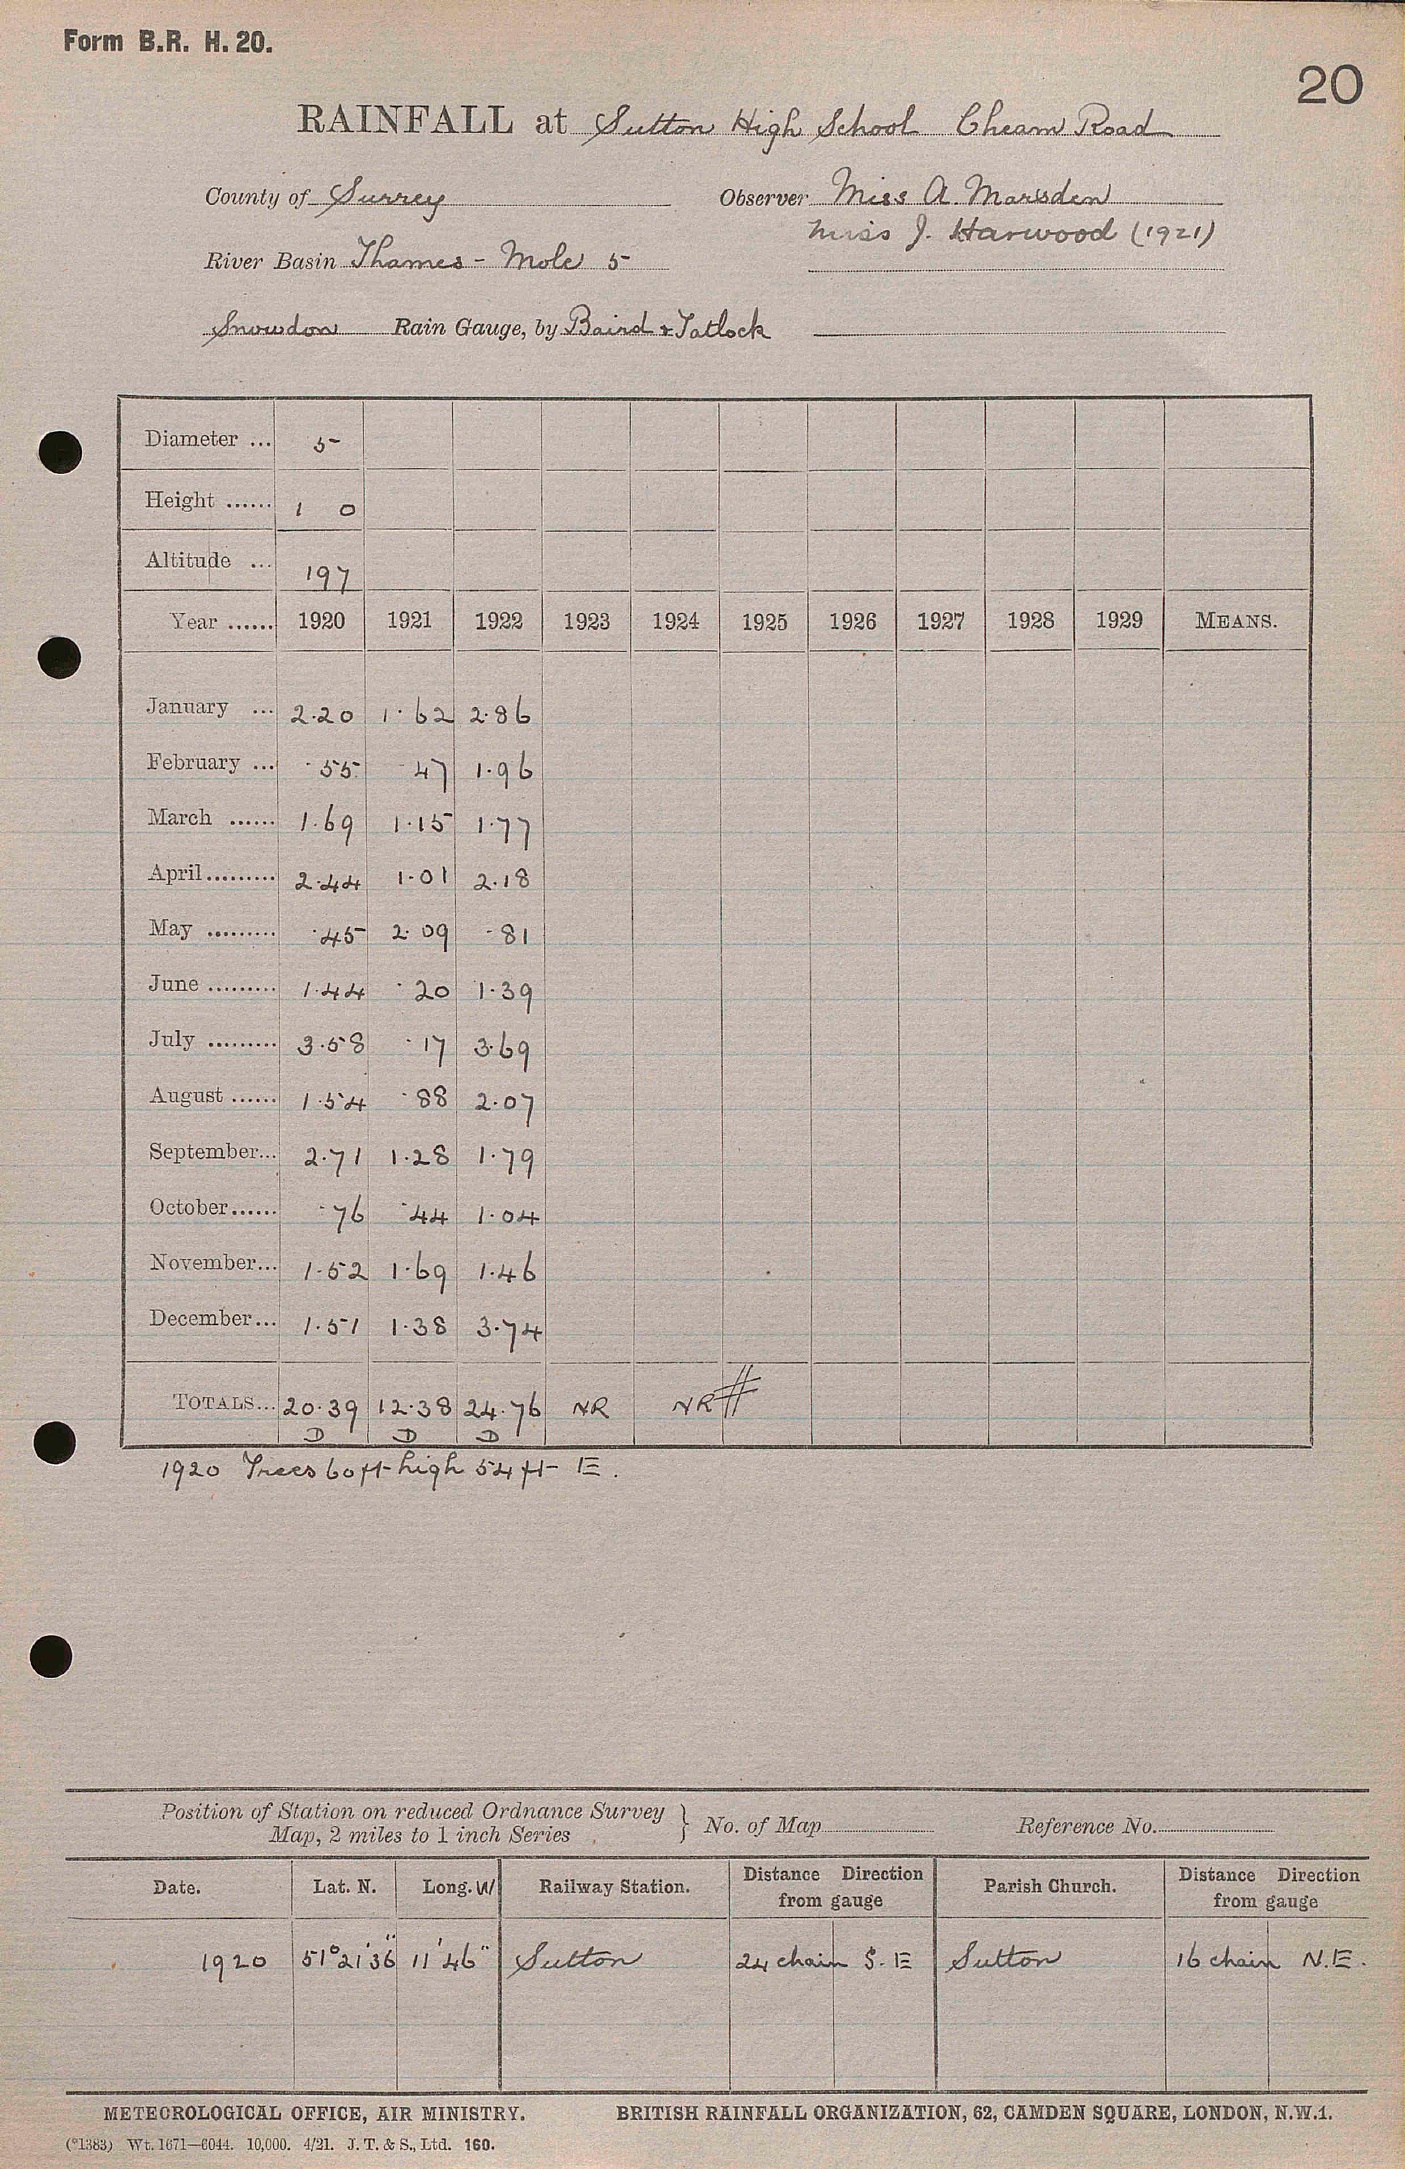 Form B.R. H. 20.
20
RAINFALL at Sutton High School Cheam Road
County of Surrey Observer Miss A. Marsden
Miss J. Harwood (1921)
River Basin Thames - Mole 5
Snowdon Rain Gauge, by Baird & Tatlock
Diameter ... 5
Height ...... 1 0
Altitude ... 197
Year ...... 1920 1921 1922 1923 1924 1925 1926 1927 1928 1929 MEANS.
January ... 2.20 1.62 2.86
February ... .55 .47 1.96
March ...... 1.69 1.15 1.77
April ......... 2.44 1.01 2.18
May ......... .45 2.09 .81
June ......... 1.44 .20 1.39
July ......... 3.58 .17 3.69
August ...... 1.54 .88 2.07
September... 2.71 1.28 1.79
October...... .76 .44 1.04
November... 1.52 1.69 1.46
December... 1.51 1.38 3.74
TOTALS... 20.39 12.38 24.76 NR NR #
D D D
1920 Trees 60 ft high 54 ft E.
Position of Station on reduced Ordnance Survey } No. of Map Reference No.
Map, 2 miles to 1 inch Series
Date. Lat. N. Long. W Railway Station. Distance Direction from gauge Parish Church. Distance Direction from gauge
1920 51°21'36" 11'46" Sutton 24 chain S.E Sutton 16 chain N.E.
METEOROLOGICAL OFFICE, AIR MINISTRY. BRITISH RAINFALL ORGANIZATION, 62, CAMDEN SQUARE, LONDON, N.W.1.
(*1383) Wt. 1671—6044. 10,000. 4/21. J. T. & S., Ltd. 160.